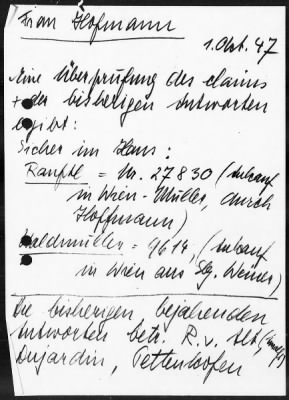 Frau Hofmann
1. Okt. 47
Eine Überprüfung des claims
+ der bisherigen Antworten
ergibt:
Sicher im Haus:
Ranftl = Nr. 27830 (Ankauf
in Wien - Müller, durch
Hoffmann)
Waldmüller = 9614, (Ankauf
in Wien aus Slg. Weiner)
Die bisherigen bejahenden
Antworten betr. R. v. Alt,
Dujardin, Pettenkofen